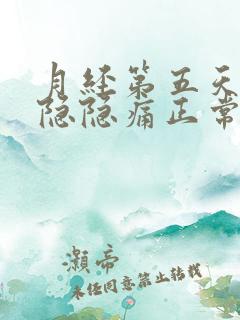 月经第五天
隐隐痛正常
灏帝
未经同意禁止转载